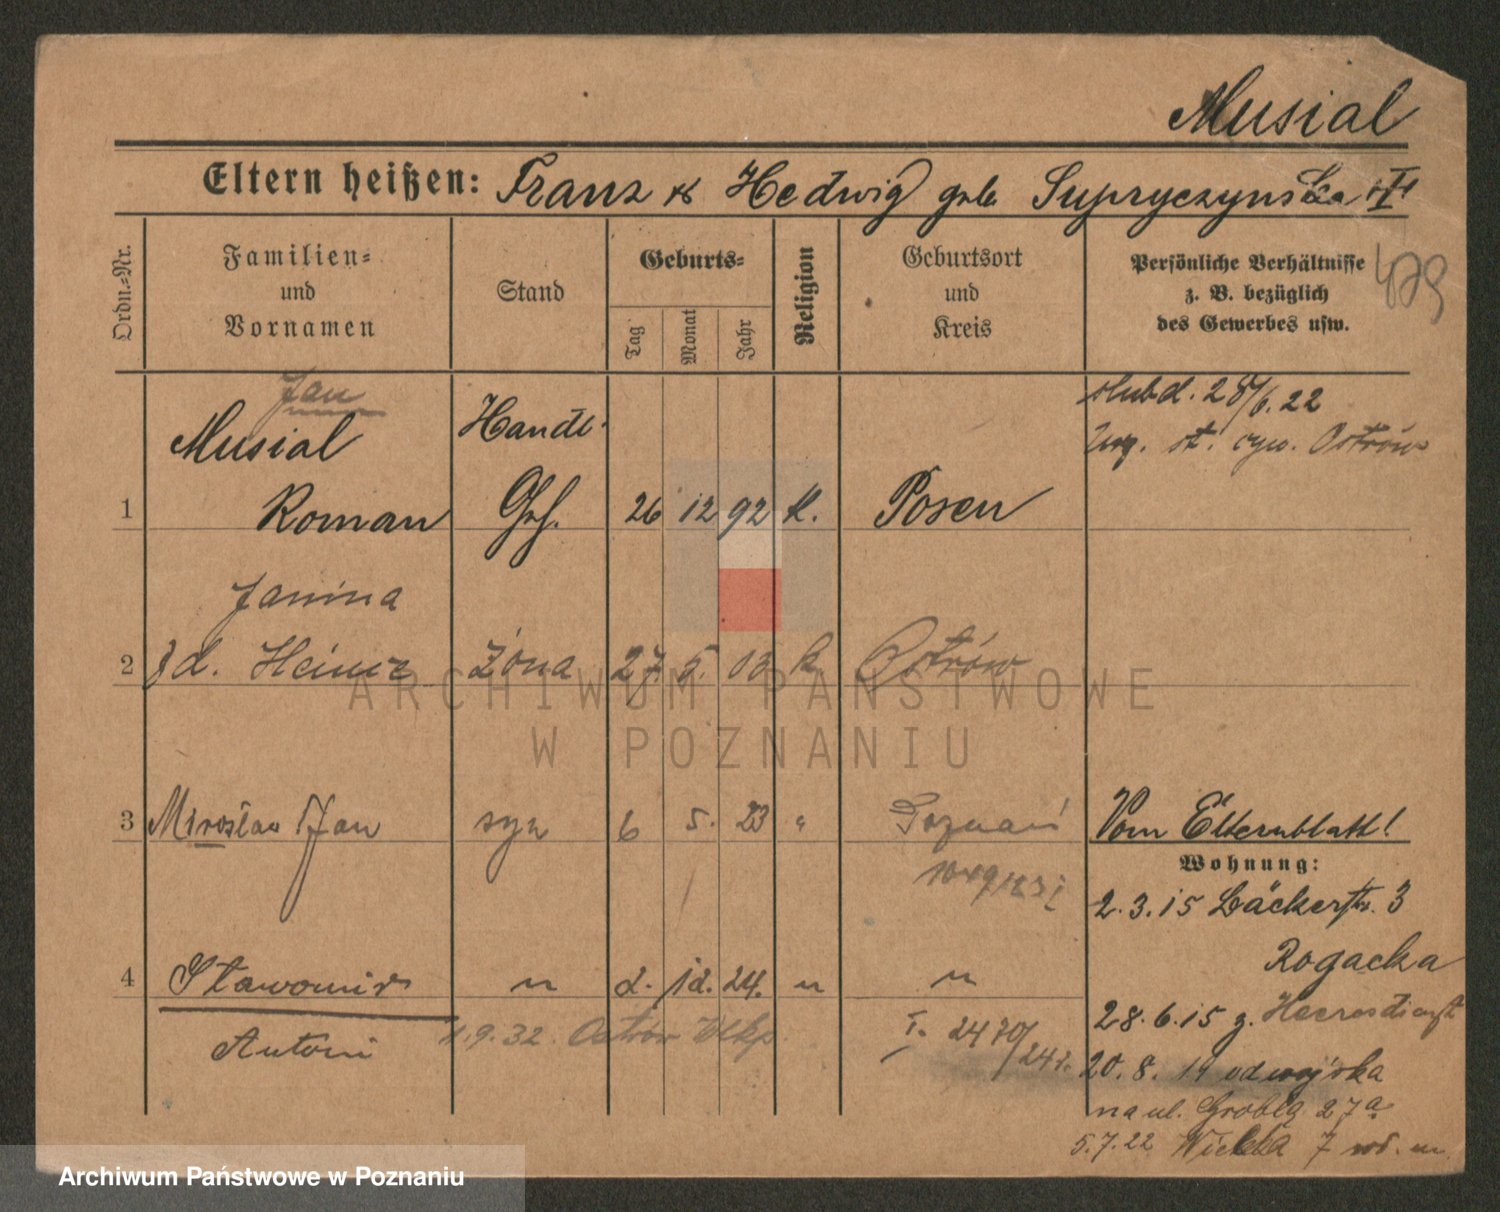 Musial
Eltern heißen: Franz & Hedwig geb. Supryczynska
Ordn.-Nr.
Familien- und Vornamen
Stand
Geburts-
Tag
Monat
Jahr
Religion
Geburtsort und Kreis
Persönliche Verhältnisse z. B. bezüglich des Gewerbes usw.
479
Jan
Musial Handl. ślubd. 28/6.22
Urz. st. cyw. Ostrów
1 Roman Geh. 26 12 92 k. Posen
Janina
2 z d. Heinze Żona 27 5. 03 k Ostrów
3 Mirosław Jan syn 6 5. 23 " Poznań Vom Elternblatt!
Wohnung:
2.3.15 Bäckerstr. 3
Rogacka
4 Sławomir " 2. 12. 24. " "
28.6.15 z. Heeresdienst
Antoni 1.9.32. Ostrów Wlkp. I. 2470/24
20.8.19 od wojska
na ul. Grobla 27a
5.7.22 Wielka 7
ARCHIWUM PAŃSTWOWE
W POZNANIU
Archiwum Państwowe w Poznaniu